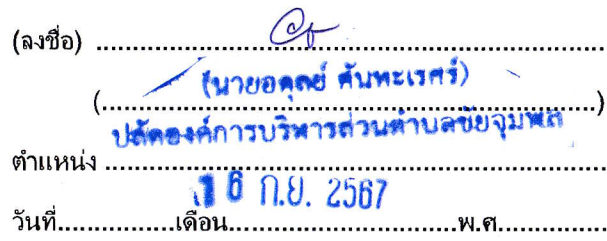 (ลงชื่อ) ........................................................
(นายอดุลย์ คันทะเรศร์)
(........................................................)
ปลัดองค์การบริหารส่วนตำบลชัยจุมพล
ตำแหน่ง ........................................................
16 ก.ย. 2567
วันที่................เดือน................................พ.ศ................